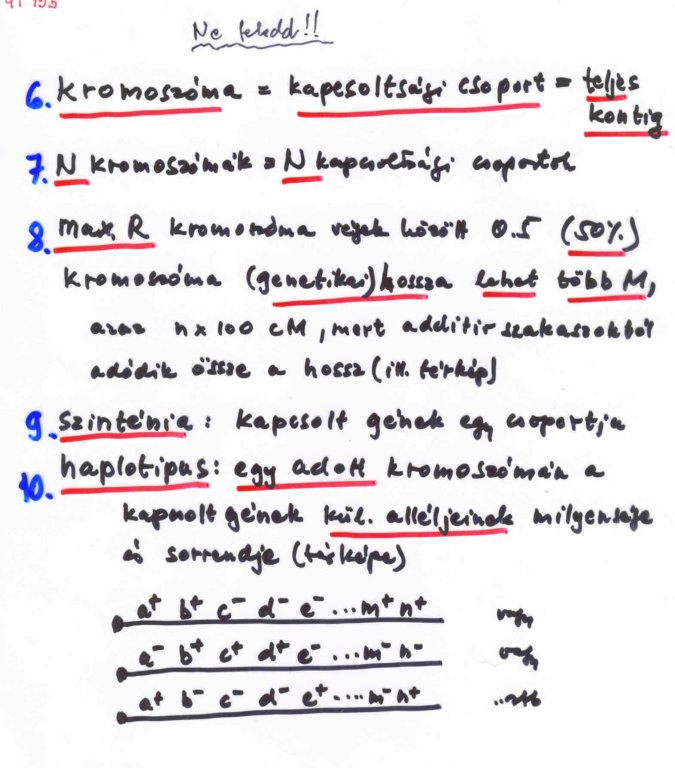 Ne feledd!!
6. Kromoszóma = kapcsoltsági csoport = teljes
kontig
7. N kromoszómák = N kapcsoltsági csoportok
8. Max. R kromoszóma végek között 0.5 (50%)
Kromoszóma (genetikai) hossza lehet több M,
azaz n x 100 cM, mert additív szakaszokból
adódik össze a hossz (ill. térkép)
9. Szinténia: kapcsolt gének egy csoportja
10. haplotípus: egy adott kromoszómán a
kapcsolt gének kül. alléljeinek milyensége
és sorrendje (térképe)
a⁺ b⁺ c⁻ d⁻ e⁻ ...m⁺ n⁺ vagy
a⁻ b⁺ c⁺ d⁺ e⁻ ...m⁻ n⁻ vagy
a⁺ b⁻ c⁻ d⁻ e⁺ ....m⁻ n⁺